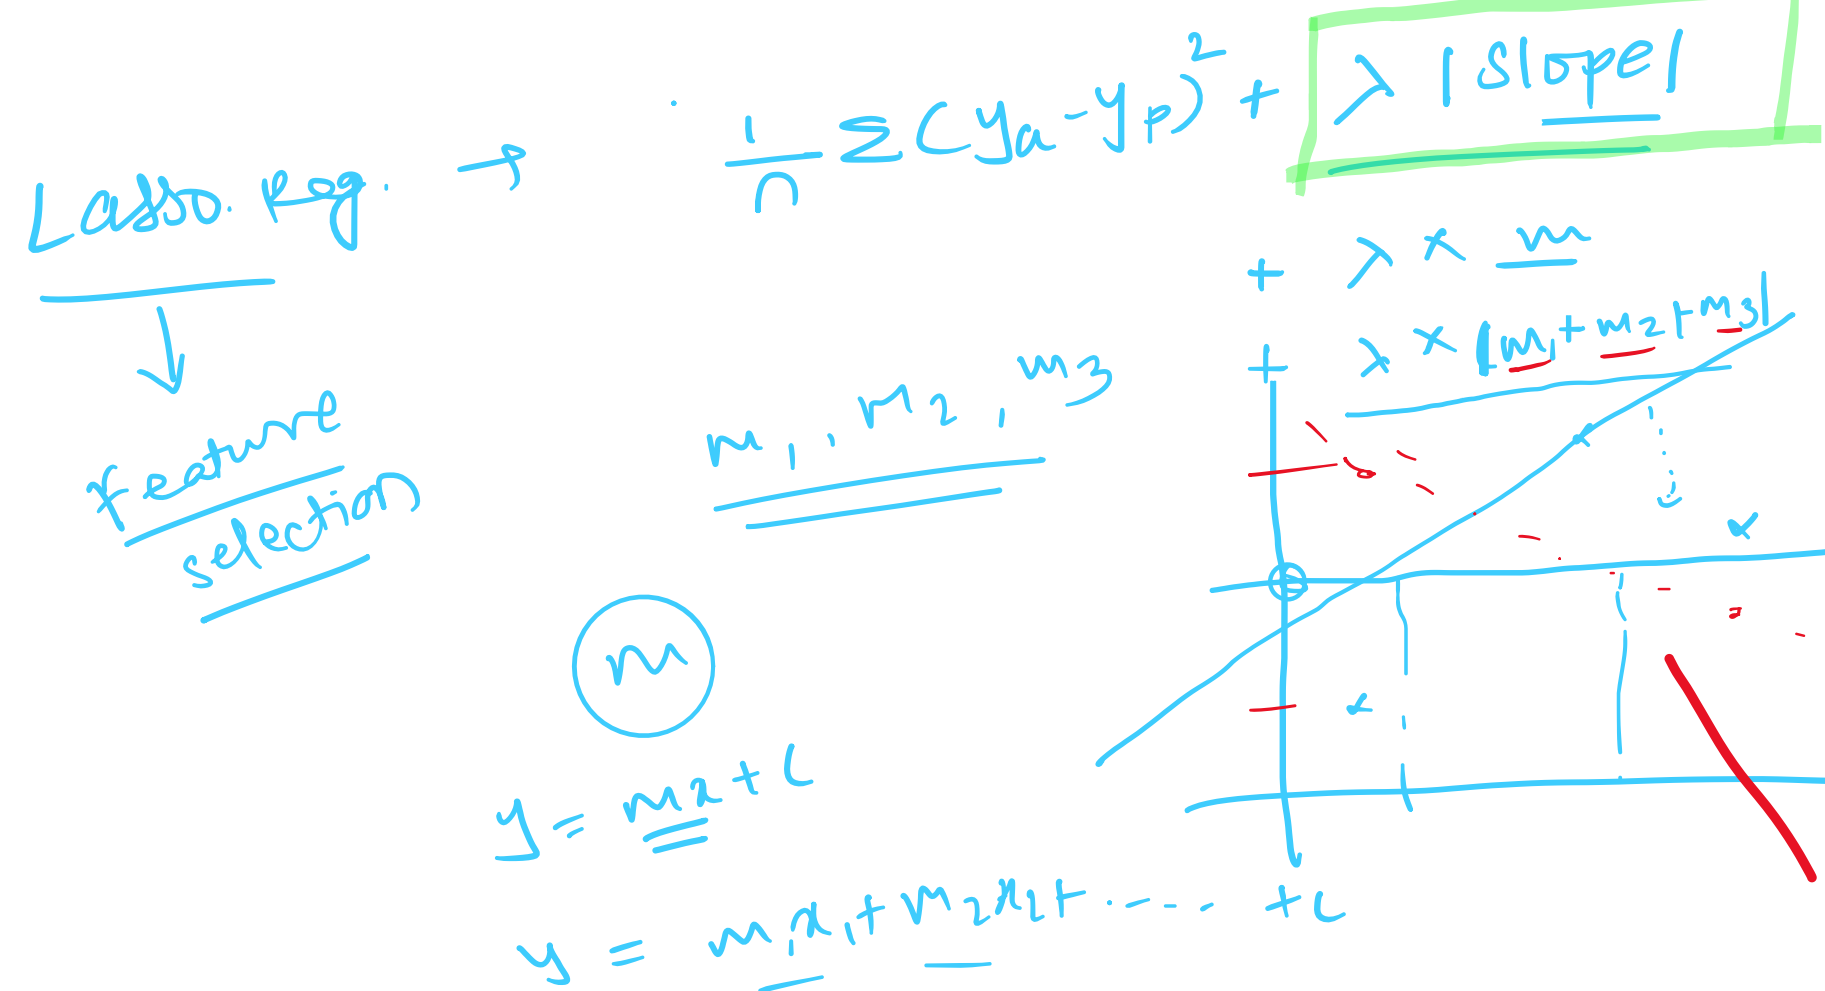 Lasso. Reg. → 1/n Σ(ya - yp)² + λ |slope|
+ λ × m
+ λ × |m1 + m2 + m3|
feature
selection
m1, m2, m3
m
y = mx + c
y = m1x1 + m2x2 + ..... + c